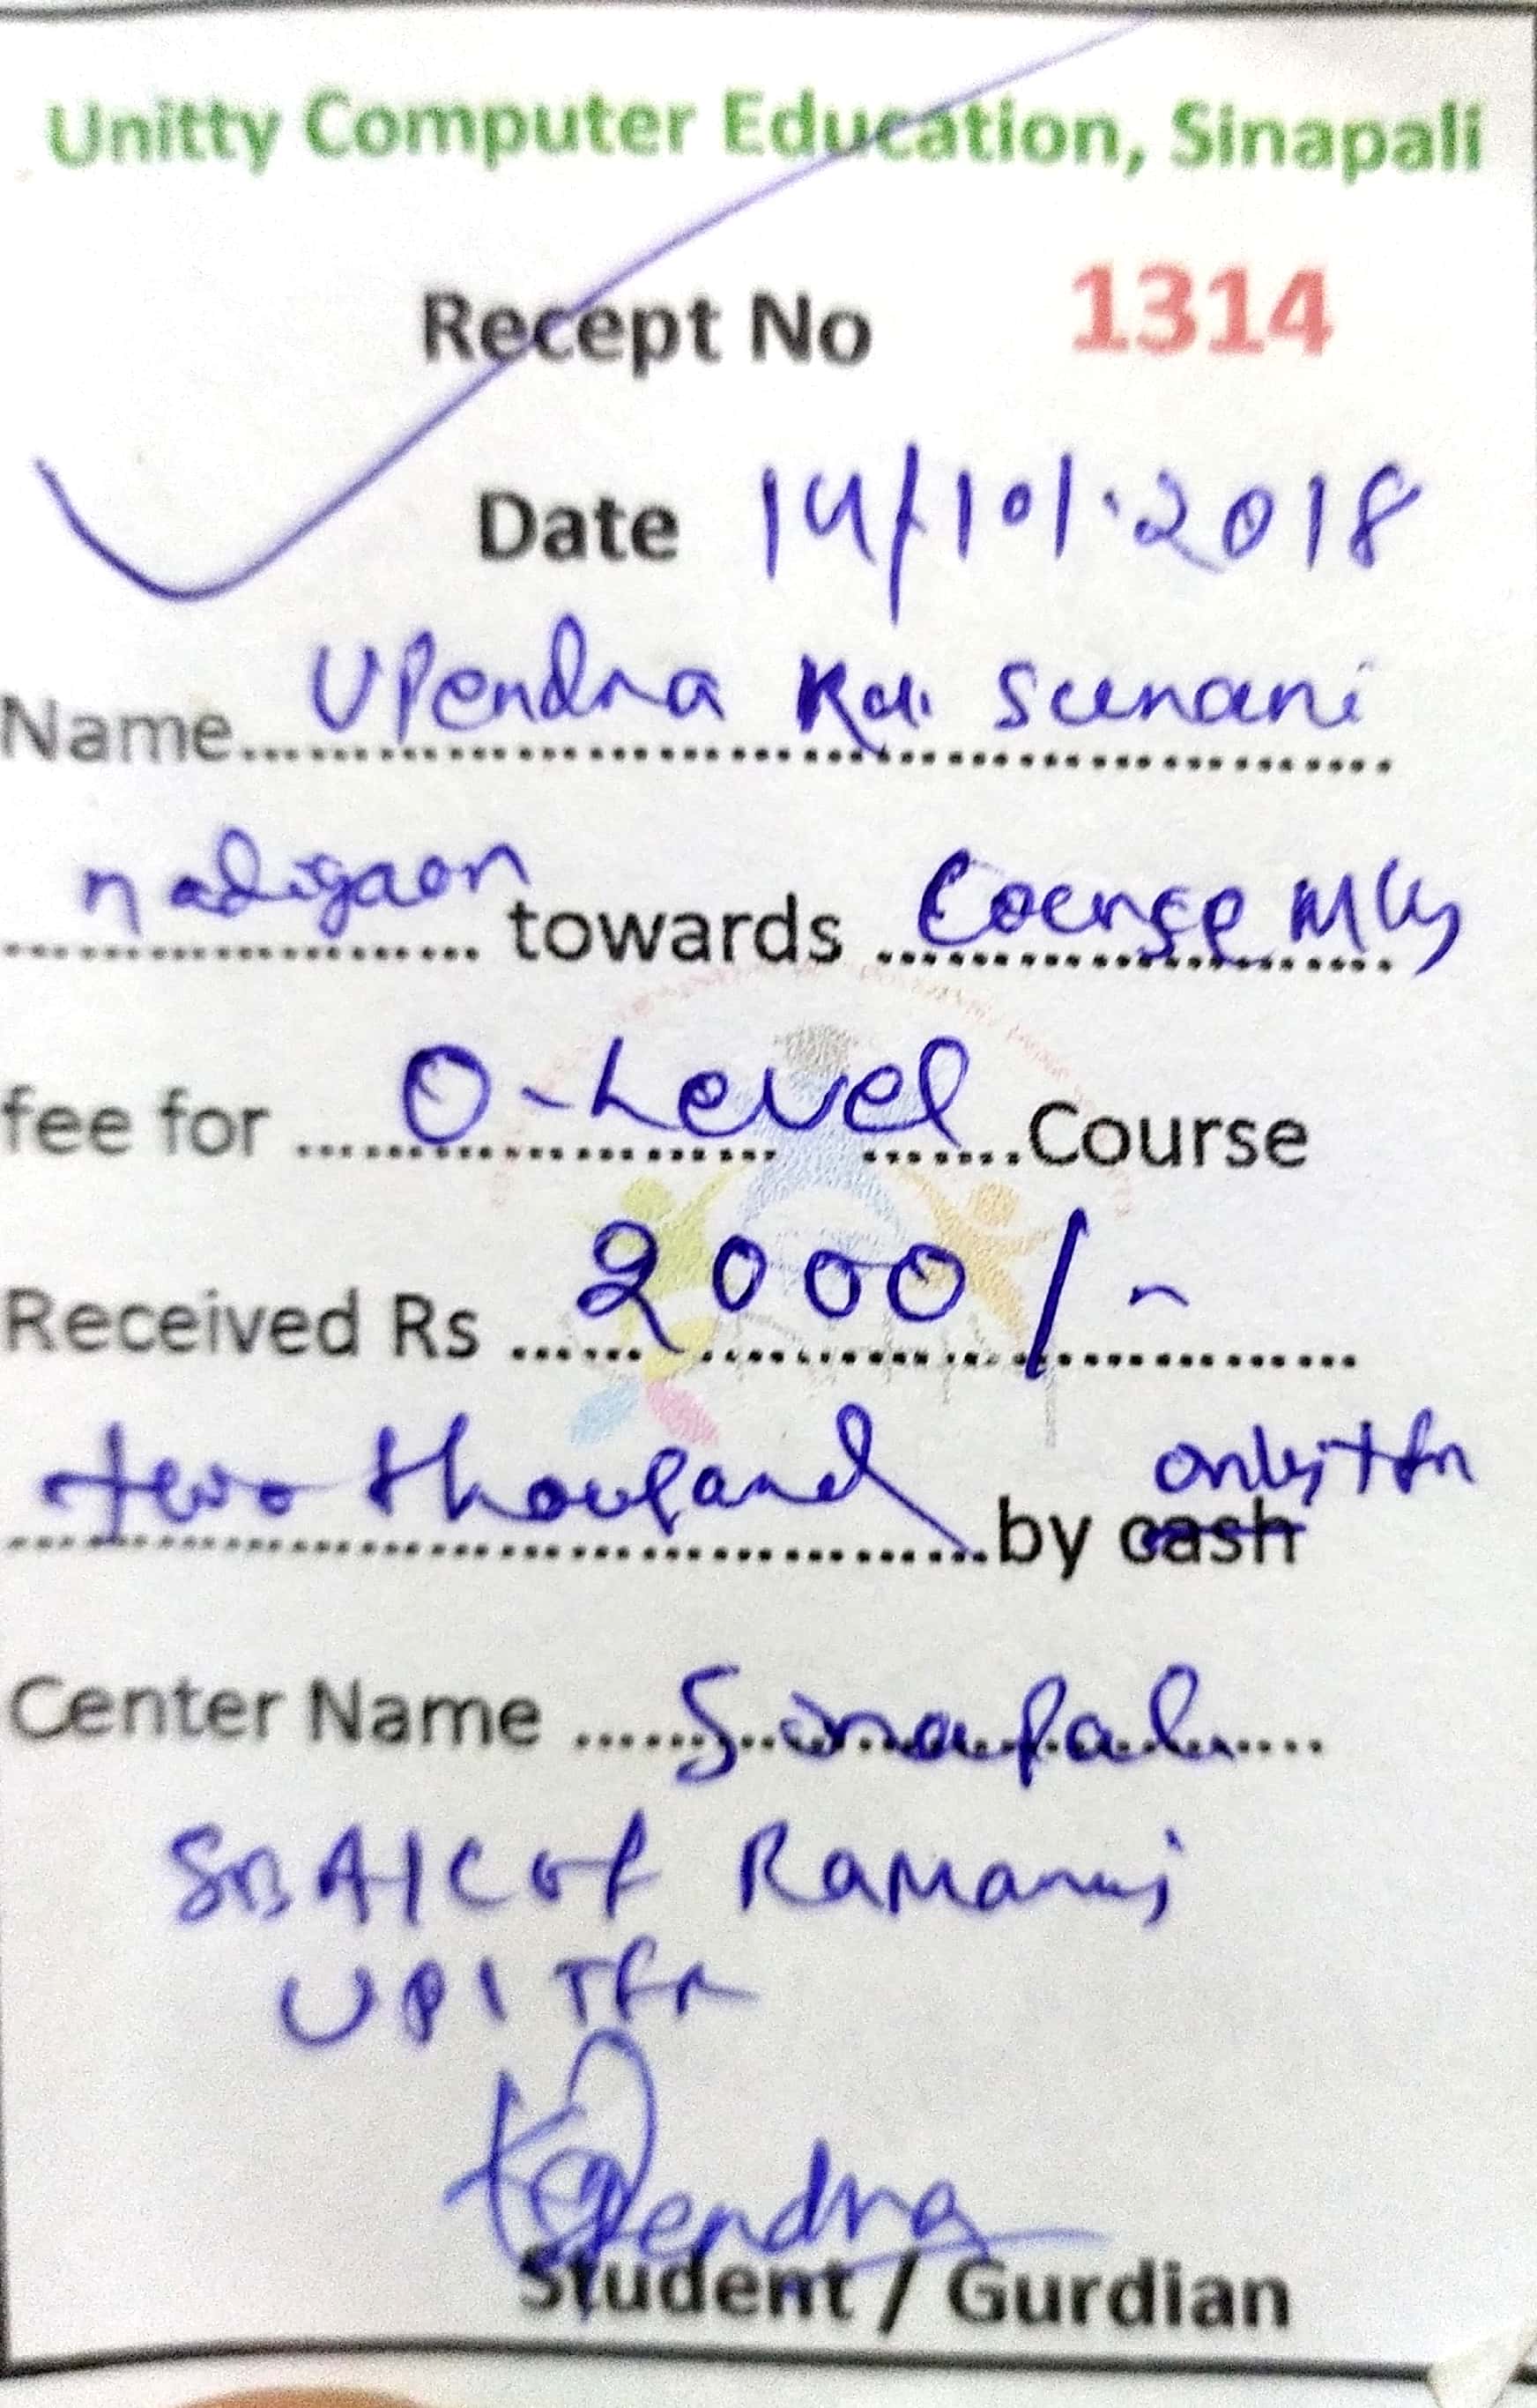 Unitty Computer Education, Sinapali
Recept No 1314
Date 14/10/.2018
Name Upendra Ku. Sunani
nadigaon towards Course Mly
fee for O-Level Course
Received Rs 2000/-
two thousand by cash only tfr
Center Name Sinapali
SB A/C of Ramanuj
UPI Tfr
Upendra
Student / Gurdian